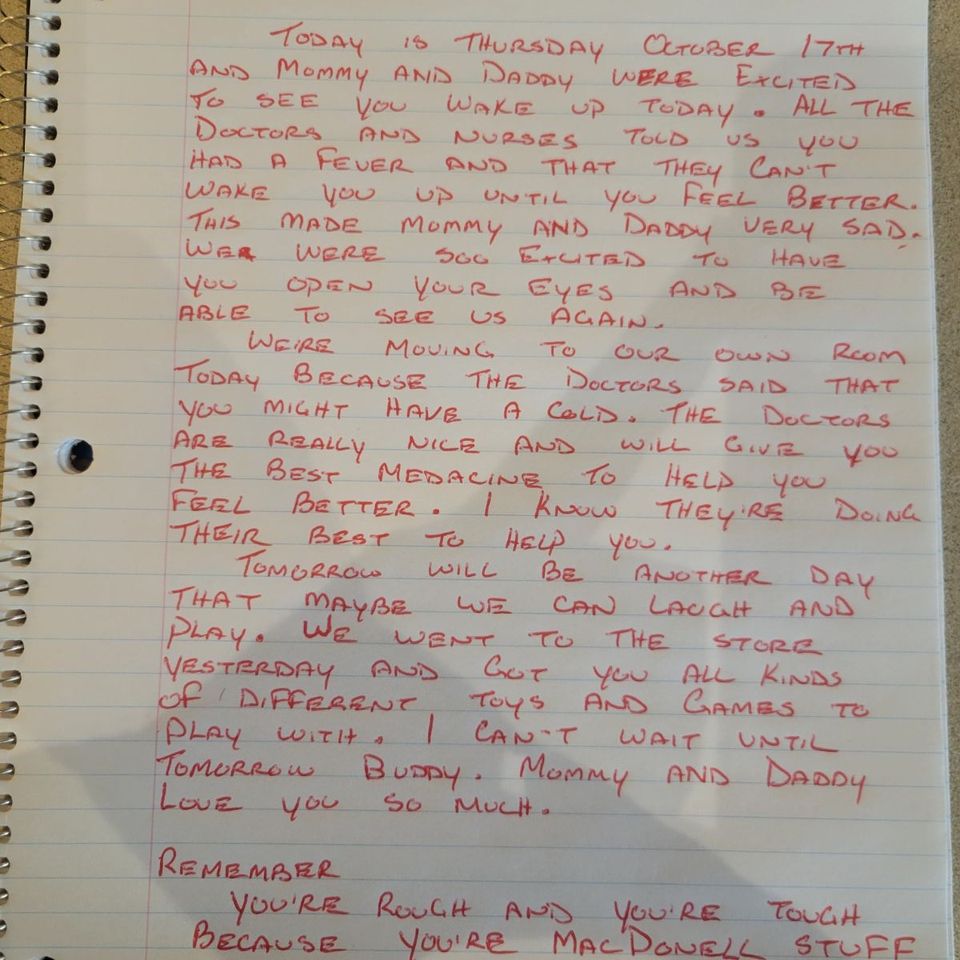 TODAY IS THURSDAY OCTOBER 17TH
AND MOMMY AND DADDY WERE EXCITED
TO SEE YOU WAKE UP TODAY. ALL THE
DOCTORS AND NURSES TOLD US YOU
HAD A FEVER AND THAT THEY CAN'T
WAKE YOU UP UNTIL YOU FEEL BETTER.
THIS MADE MOMMY AND DADDY VERY SAD.
WE WERE SOO EXCITED TO HAVE
YOU OPEN YOUR EYES AND BE
ABLE TO SEE US AGAIN.
WE'RE MOVING TO OUR OWN ROOM
TODAY BECAUSE THE DOCTORS SAID THAT
YOU MIGHT HAVE A COLD. THE DOCTORS
ARE REALLY NICE AND WILL GIVE YOU
THE BEST MEDACINE TO HELP YOU
FEEL BETTER. I KNOW THEY'RE DOING
THEIR BEST TO HELP YOU.
TOMORROW WILL BE ANOTHER DAY
THAT MAYBE WE CAN LAUGH AND
PLAY. WE WENT TO THE STORE
YESTERDAY AND GOT YOU ALL KINDS
OF DIFFERENT TOYS AND GAMES TO
PLAY WITH. I CAN'T WAIT UNTIL
TOMORROW BUDDY. MOMMY AND DADDY
LOVE YOU SO MUCH.
REMEMBER
YOU'RE ROUGH AND YOU'RE TOUGH
BECAUSE YOU'RE MACDONELL STUFF